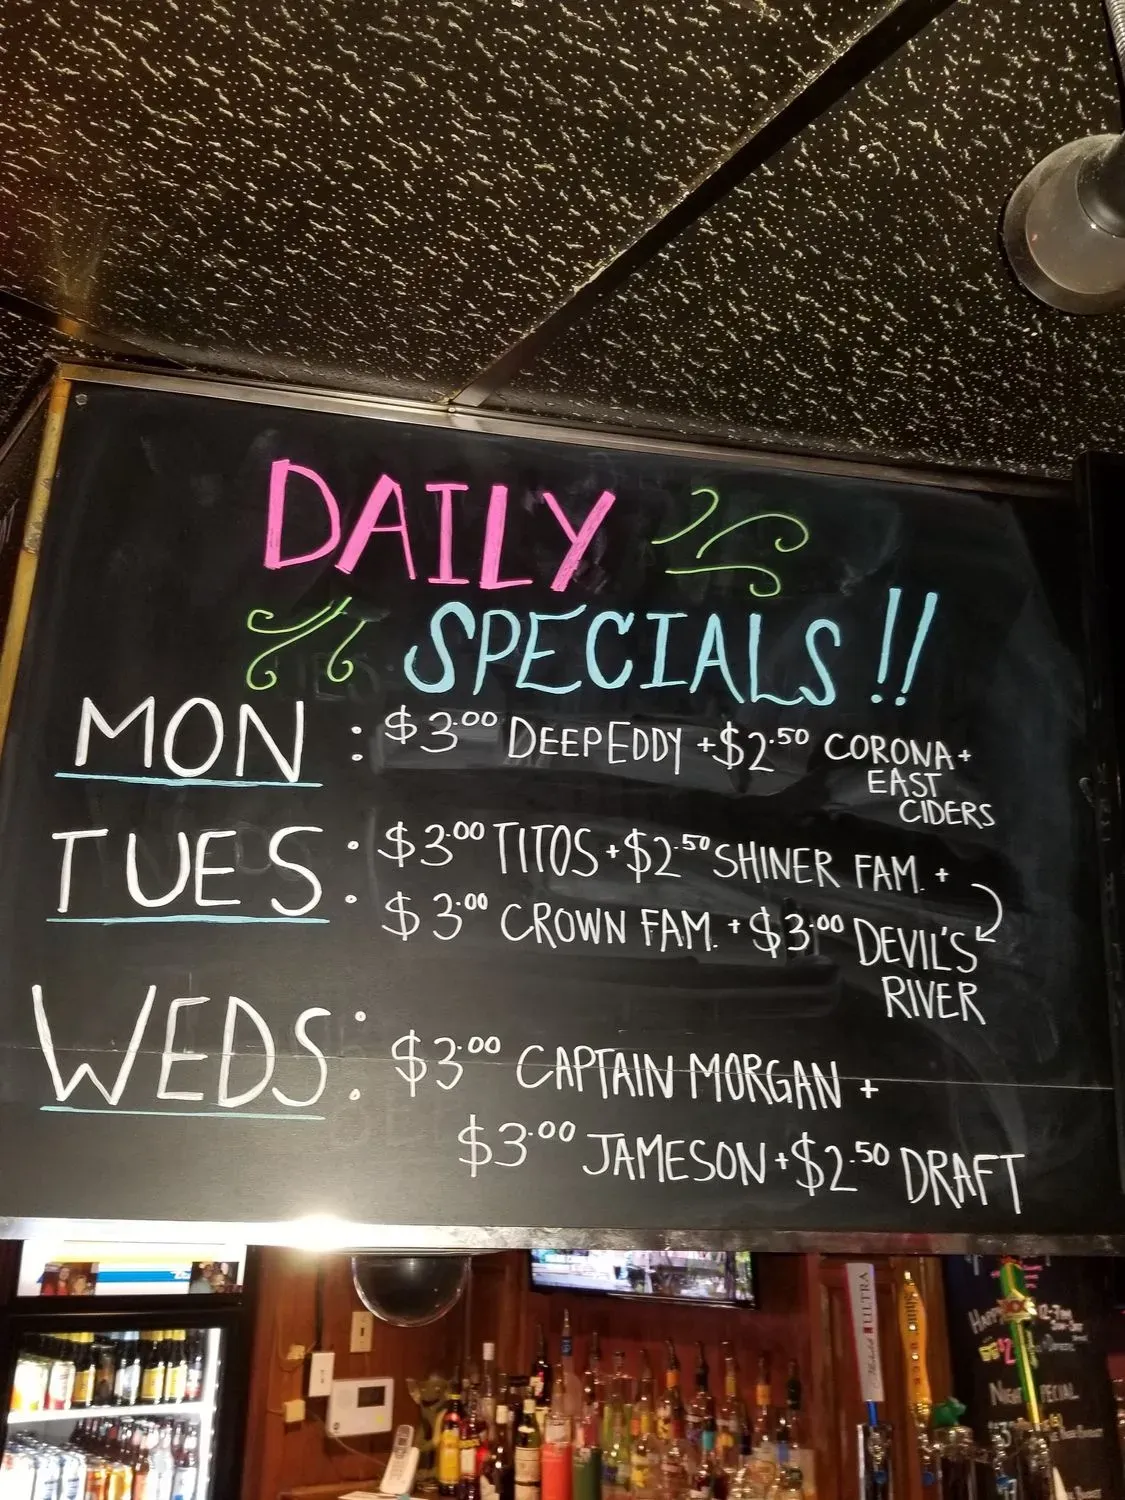 DAILY
SPECIALS!!
MON : $3.00 DEEP EDDY + $2.50 CORONA +
EAST
CIDERS
TUES : $3.00 TITOS + $2.50 SHINER FAM. +
$3.00 CROWN FAM. + $3.00 DEVIL'S
RIVER
WEDS : $3.00 CAPTAIN MORGAN +
$3.00 JAMESON + $2.50 DRAFT
ULTRA